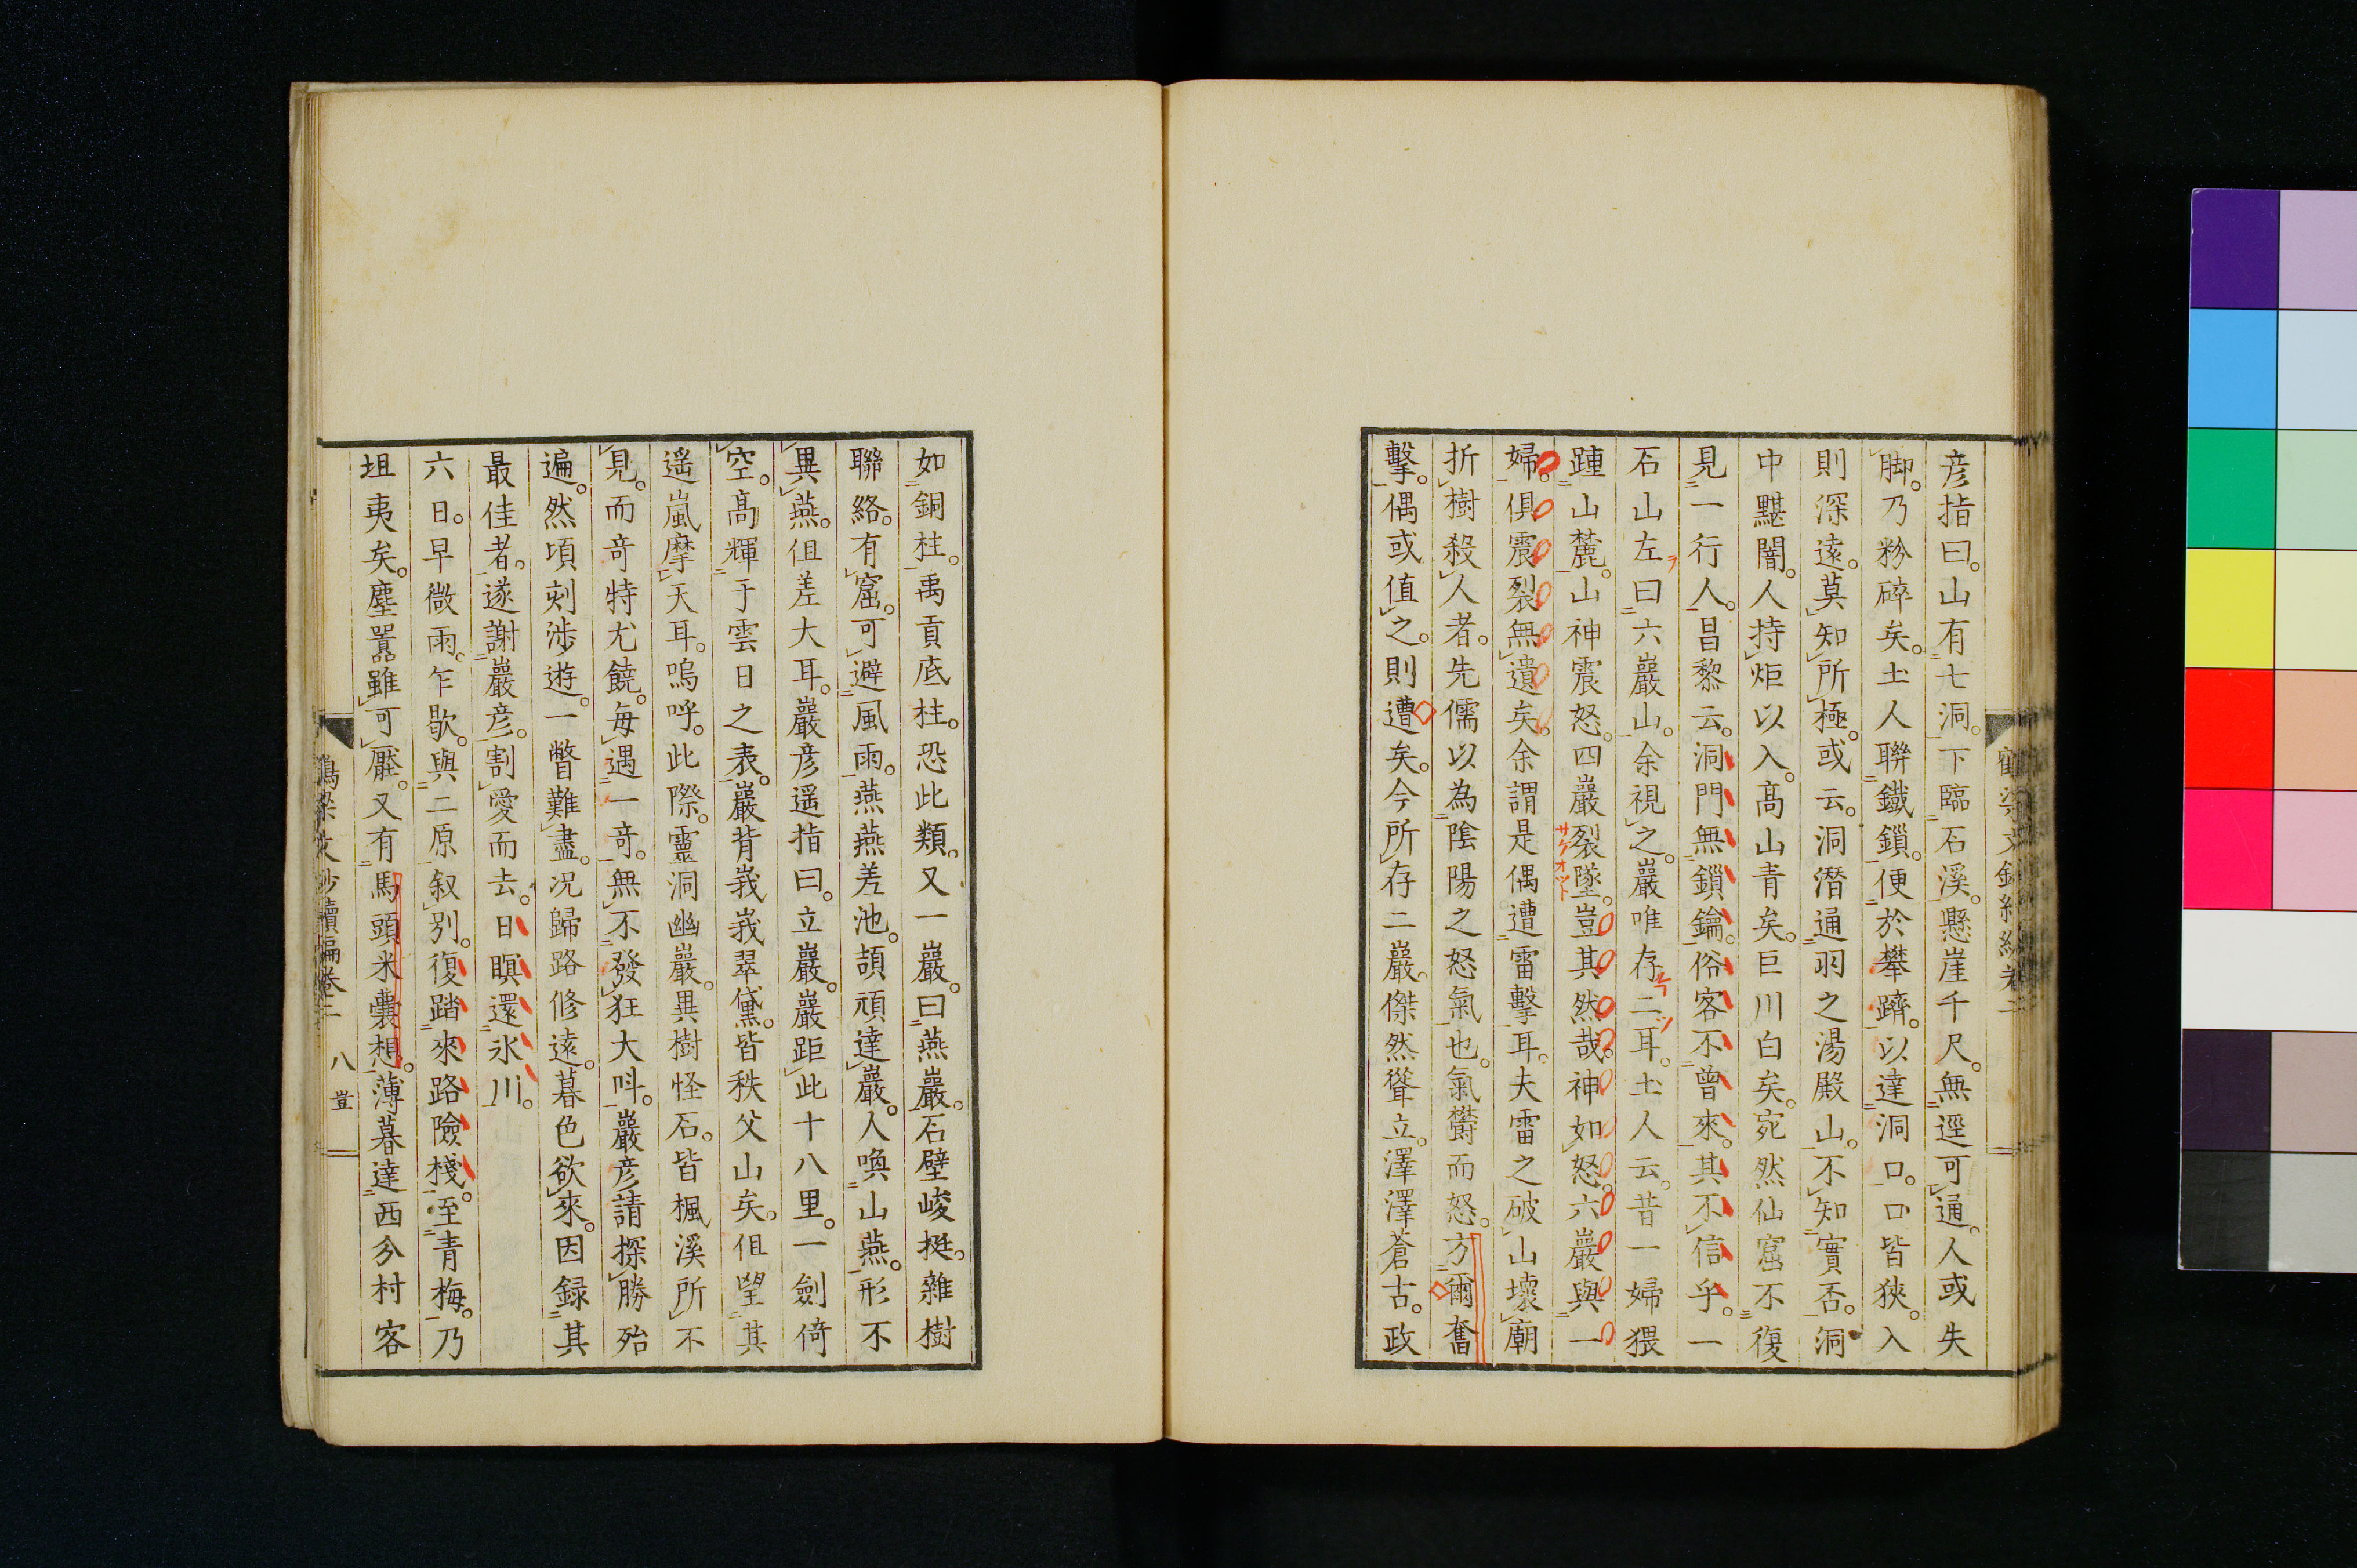 彦指曰。山有七洞。下臨石溪。懸崖千尺。無逕可通。人或失
脚。乃粉碎矣。土人聯鐵鎖。便於攀躋。以達洞口。口皆狹。入
則深遠。莫知所極。或云。洞潛通羽之湯殿山。不知實否。洞
中黮闇。人持炬以入。髙山青矣。巨川白矣。宛然仙窟不復
見一行人。昌黎云。洞門無鎖鑰。俗客不曾來。其不信乎。一
石山左曰六巖山。余視之。巖唯存二耳。土人云。昔一婦猥
踵山麓。山神震怒。四巖裂墜。豈其然哉。神如怒。六巖與一
婦。俱震裂無遺矣。余謂是偶遭雷擊耳。夫雷之破山壞廟
折樹殺人者。先儒以為陰陽之怒氣也。氣欝而怒。方爾奮
擊。偶或値之。則遭矣。今所存二巖。傑然聳立。澤澤蒼古。政
如銅柱。禹貢底柱。恐此類。又一巖。曰燕巖。石壁峻挺。雜樹
聯絡。有窟。可避風雨。燕燕差池。頡頏達巖。人喚山燕。形不
異燕。但差大耳。巖彦遥指曰。立巖。巖距此十八里。一劍倚
空。髙輝于雲日之表。巖背峩峩翠黛。皆秩父山矣。但望其
遥嵐摩天耳。嗚呼。此際。靈洞幽巖。異樹怪石。皆楓溪所不
見。而竒特尤饒。毎遇一竒。無不發狂大呌。巖彦請探勝殆
遍。然頃刻渉遊。一瞥難盡。况歸路修遠。暮色欲來。因録其
最佳者。遂謝巖彦。割愛而去。日暝還氷川。
六日。早微雨。乍歇。與二原叙別。復踏來路險棧。至青梅。乃
坦夷矣。塵囂雖可厭。又有馬頭米囊想。薄暮達西分村客
鶴梁文鈔續編卷二 八 豈